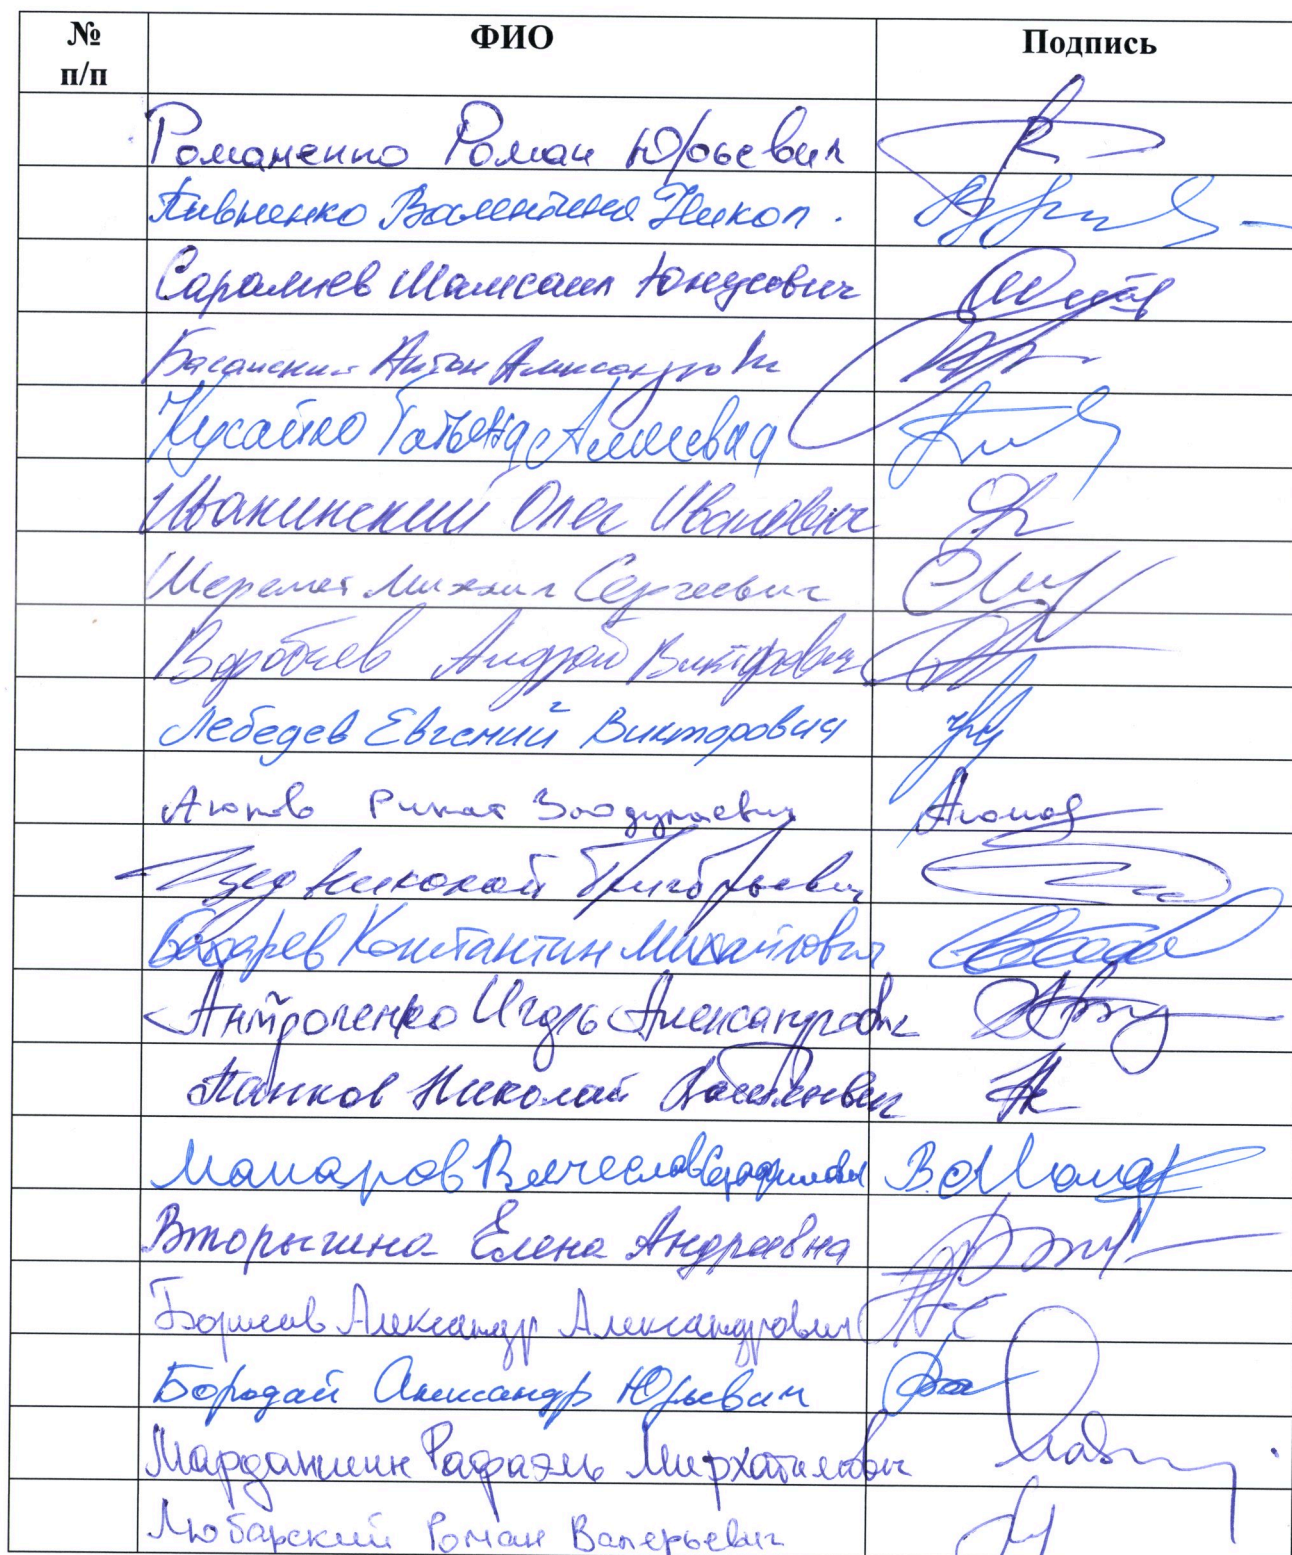 № п/п ФИО Подпись
Романенко Роман Юрьевич
Пивненко Валентина Никол.
Саралиев Шамсаил Юнусович
Басанский Антон Александрович
Кусайко Татьяна Алексевна
Иванинский Олег Иванович
Шеремет Михаил Сергеевич
Воробьев Андрей Викторович
Лебедев Евгений Викторович
Аюпов Ринат Зайдулаевич
Николай Григорьевич
Бахарев Константин Михайлович
Антропенко Игорь Александрович
Панков Николай Васильевич
Макаров Вячеслав Серафимович
Вторыгина Елена Андреевна
Борисов Александр Александрович
Бородай Александр Юрьевич
Марданшин Рафаэль Мирхатимович
Любарский Роман Валерьевич